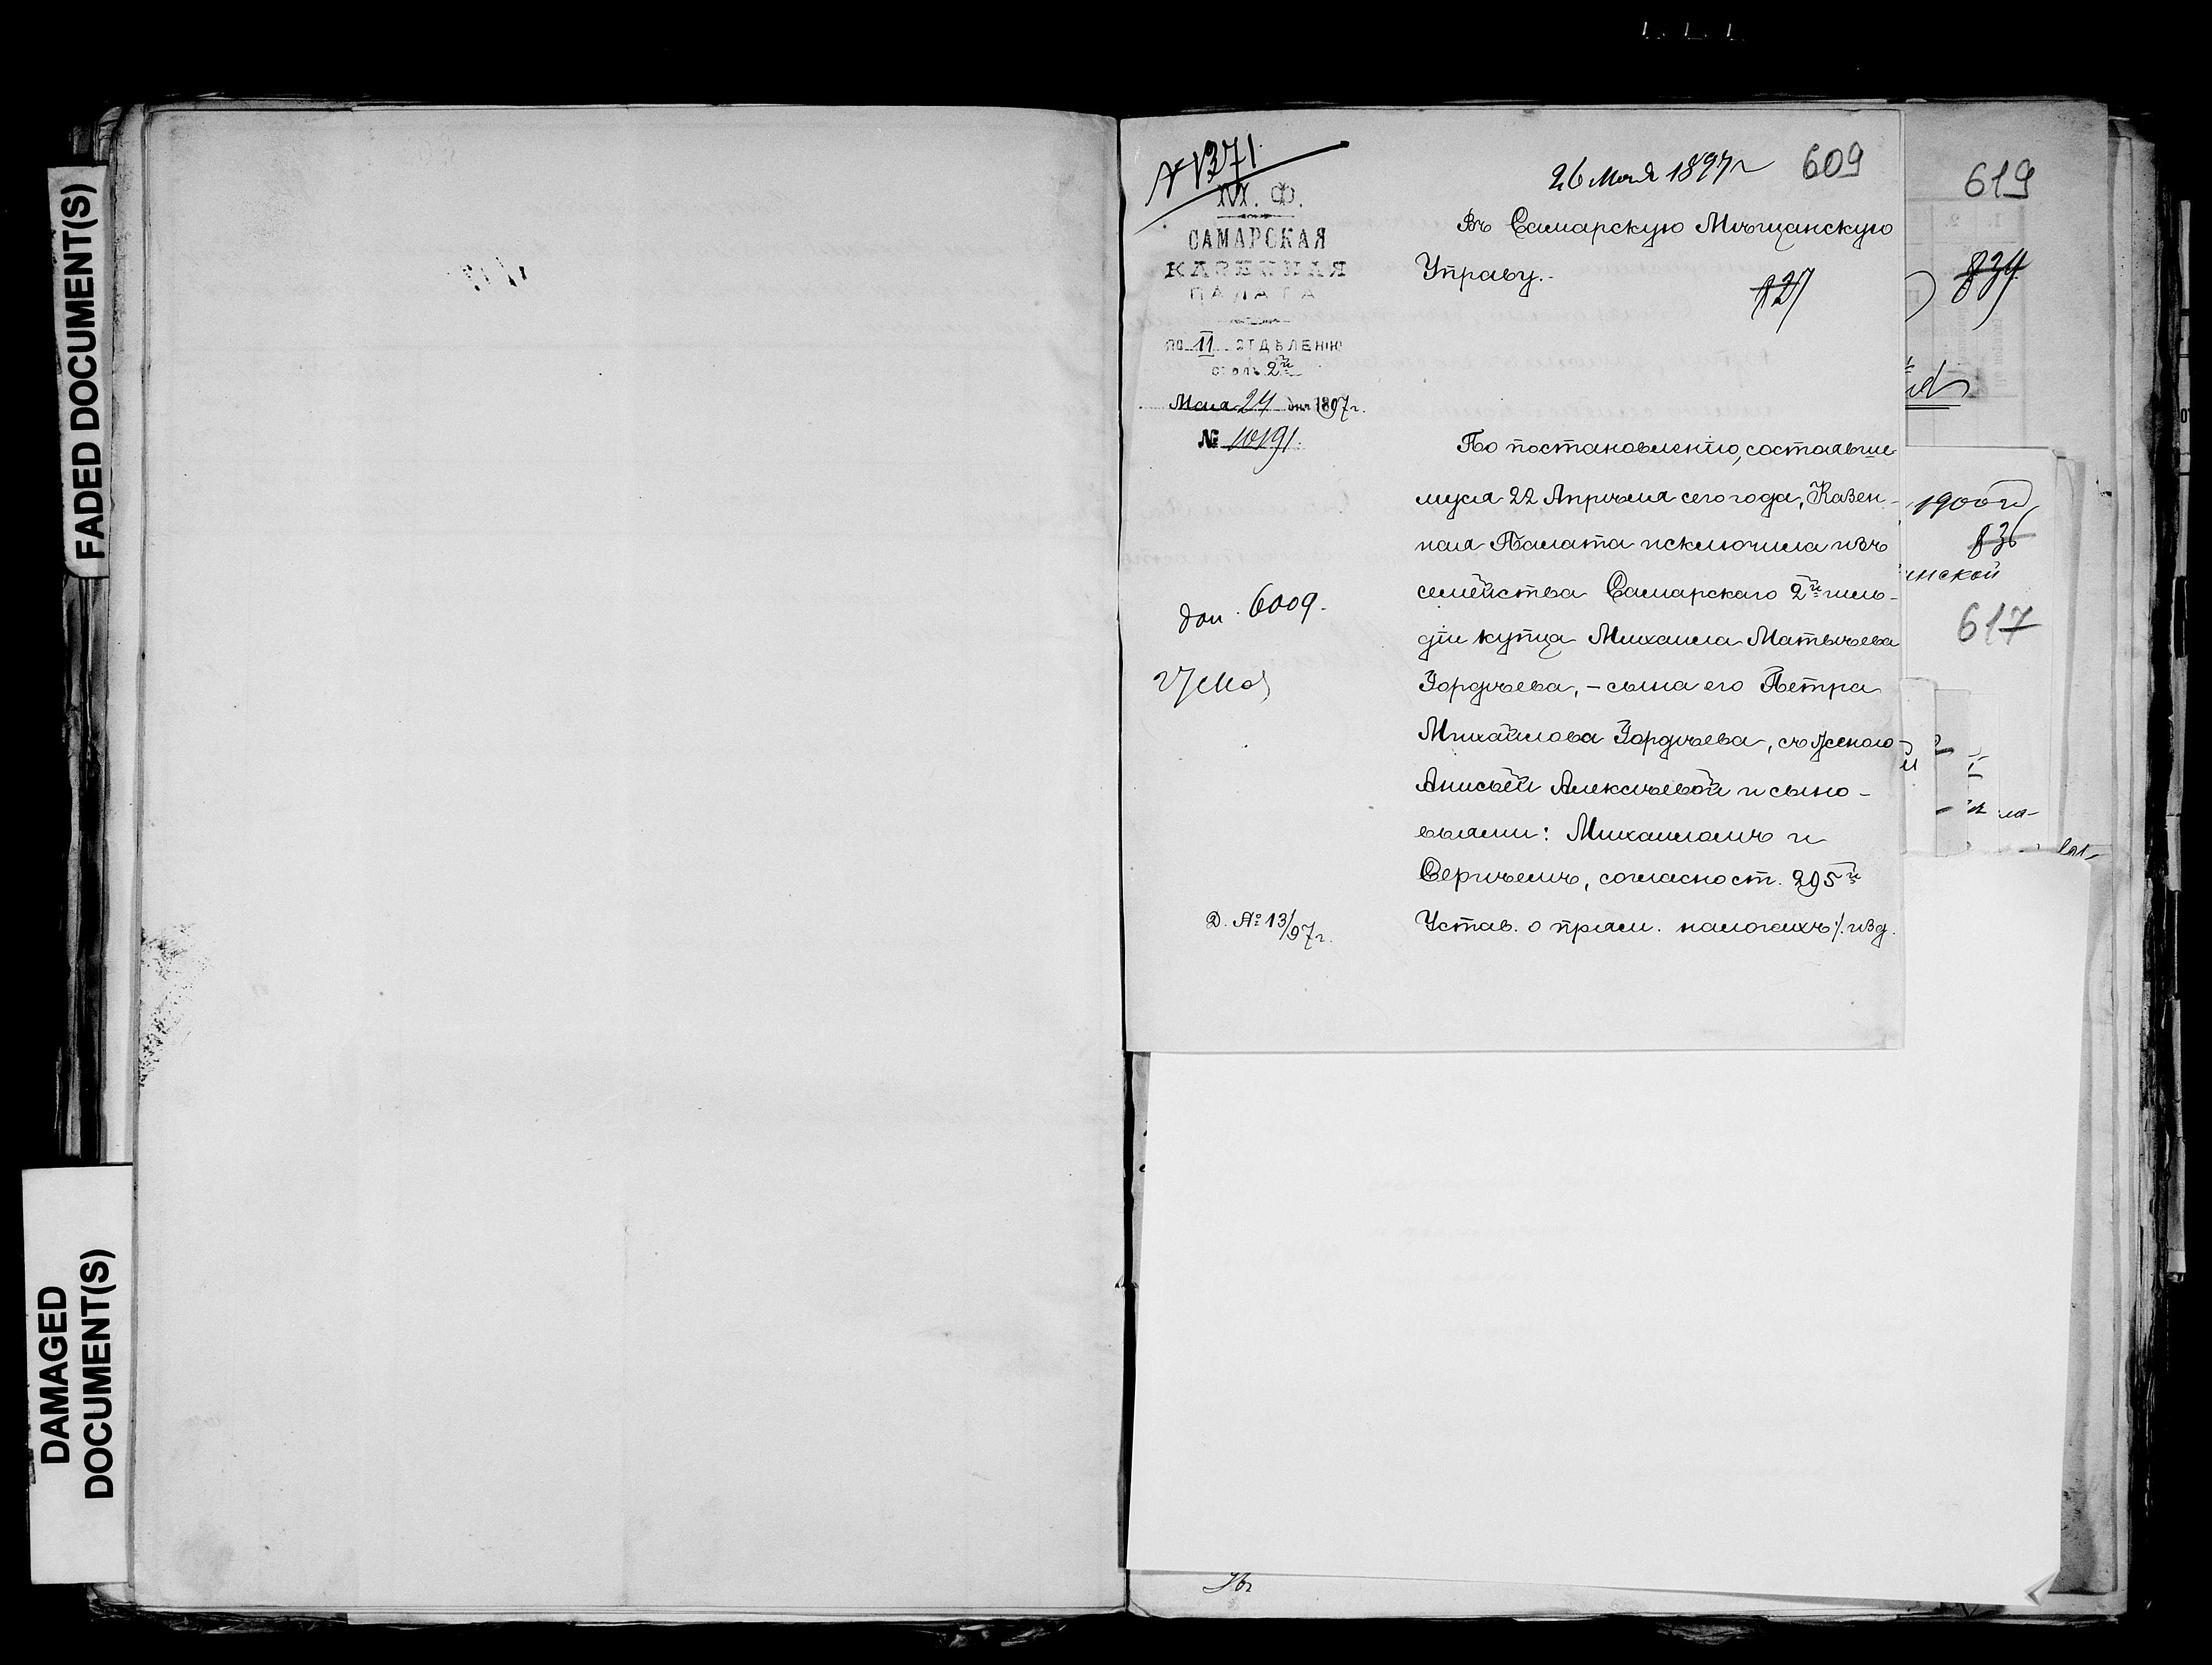 FADED DOCUMENT(S)
DAMAGED
DOCUMENT(S)
№ 1371.
М. Ф.
САМАРСКАЯ
КАЗЕННАЯ
ПАЛАТА
ПО II ОТДѢЛЕНІЮ
столъ 2й
Мая 24 дня 1897 г.
№ 10191.
доп. 6009.
Д. № 13/97 г.
26 Мая 1897 г
609
Въ Самарскую Мѣщанскую
Управу.
По постановленію, состоявше
муся 22 Апрѣля сего года, Казен-
ная Палата исключила изъ
семейства Самарскаго 2й гиль-
діи купца Михаила Матвѣева
Гордѣева, - сына его Петра
Михайлова Гордѣева, съ женою
Анисьей Алексѣевой и сыно-
вьями: Михаиломъ и
Сергѣемъ, согласно ст. 295й
Устав. о прям. налогахъ /. изд.
619
834
1900 г
836
инской
617